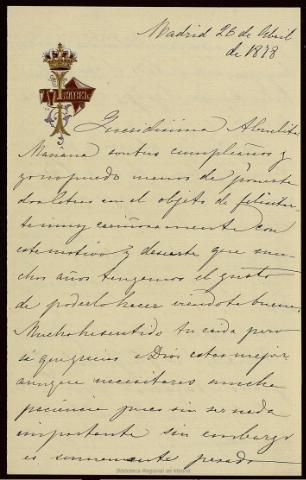 Madrid 26 de Abril
de 1878
ISABEL
Queridisima Abuelita
Mañana son tus cumpleaños y
yo no puedo menos de ponerte
dos letras con el objeto de felicitar
te muy cariñosamente con
este motivo y desearte que mu
chos años tengamos el gusto
de poderlo hacer viendote buena.
Mucho he sentido tu caida pero
sé que gracias a Dios estas mejor
aunque necesitaras mucha
paciencia pues sin ser nada
importante sin embargo
es sumamente pesado
Biblioteca Regional de Madrid